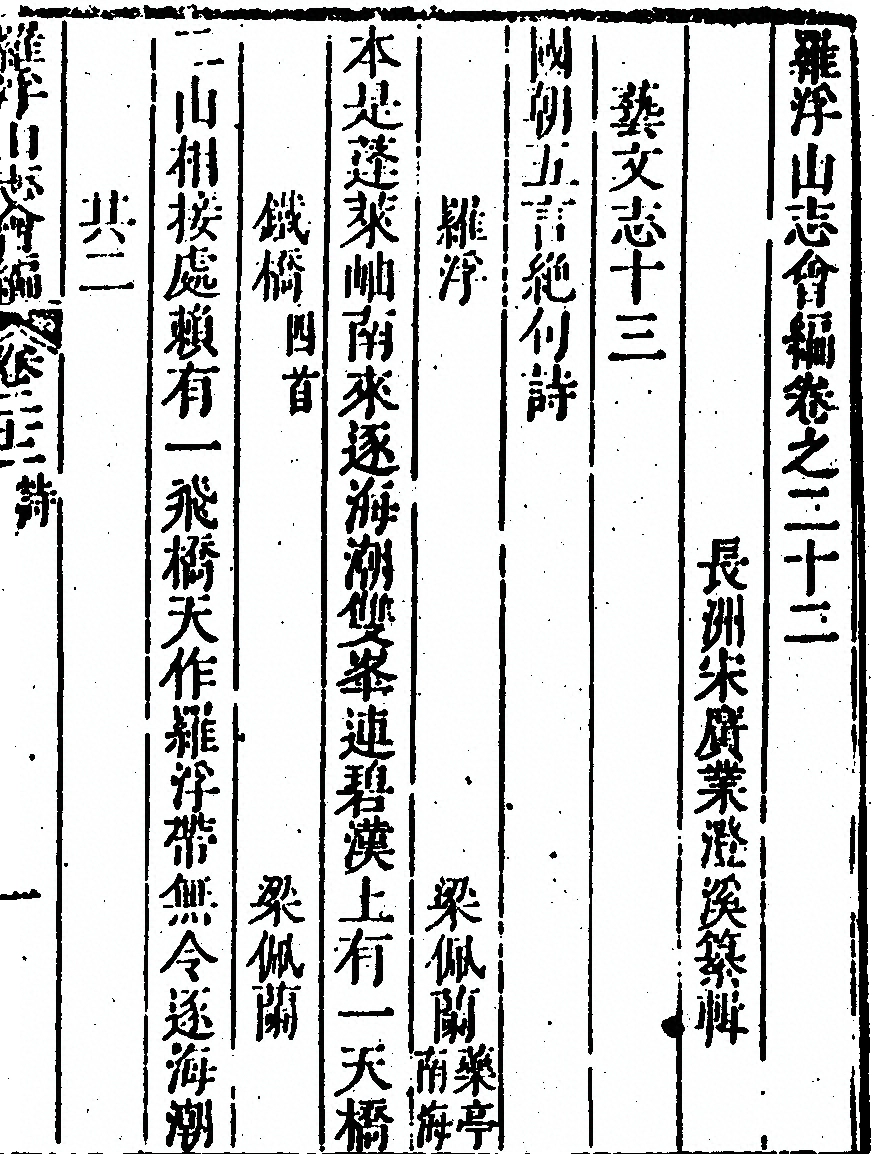 羅浮山志會編卷之二十二
長洲宋廣業澄溪纂輯
藝文志十三
國朝五言絶句詩
羅浮 梁佩蘭 藥亭 南海
本是蓬萊岫南來逐海潮雙峯連碧漢上有一天橋
鐵橋 四首 梁佩蘭
二山相接處賴有一飛橋天作羅浮帶無令逐海潮
共二
羅浮山志會編 卷二十二 詩 一